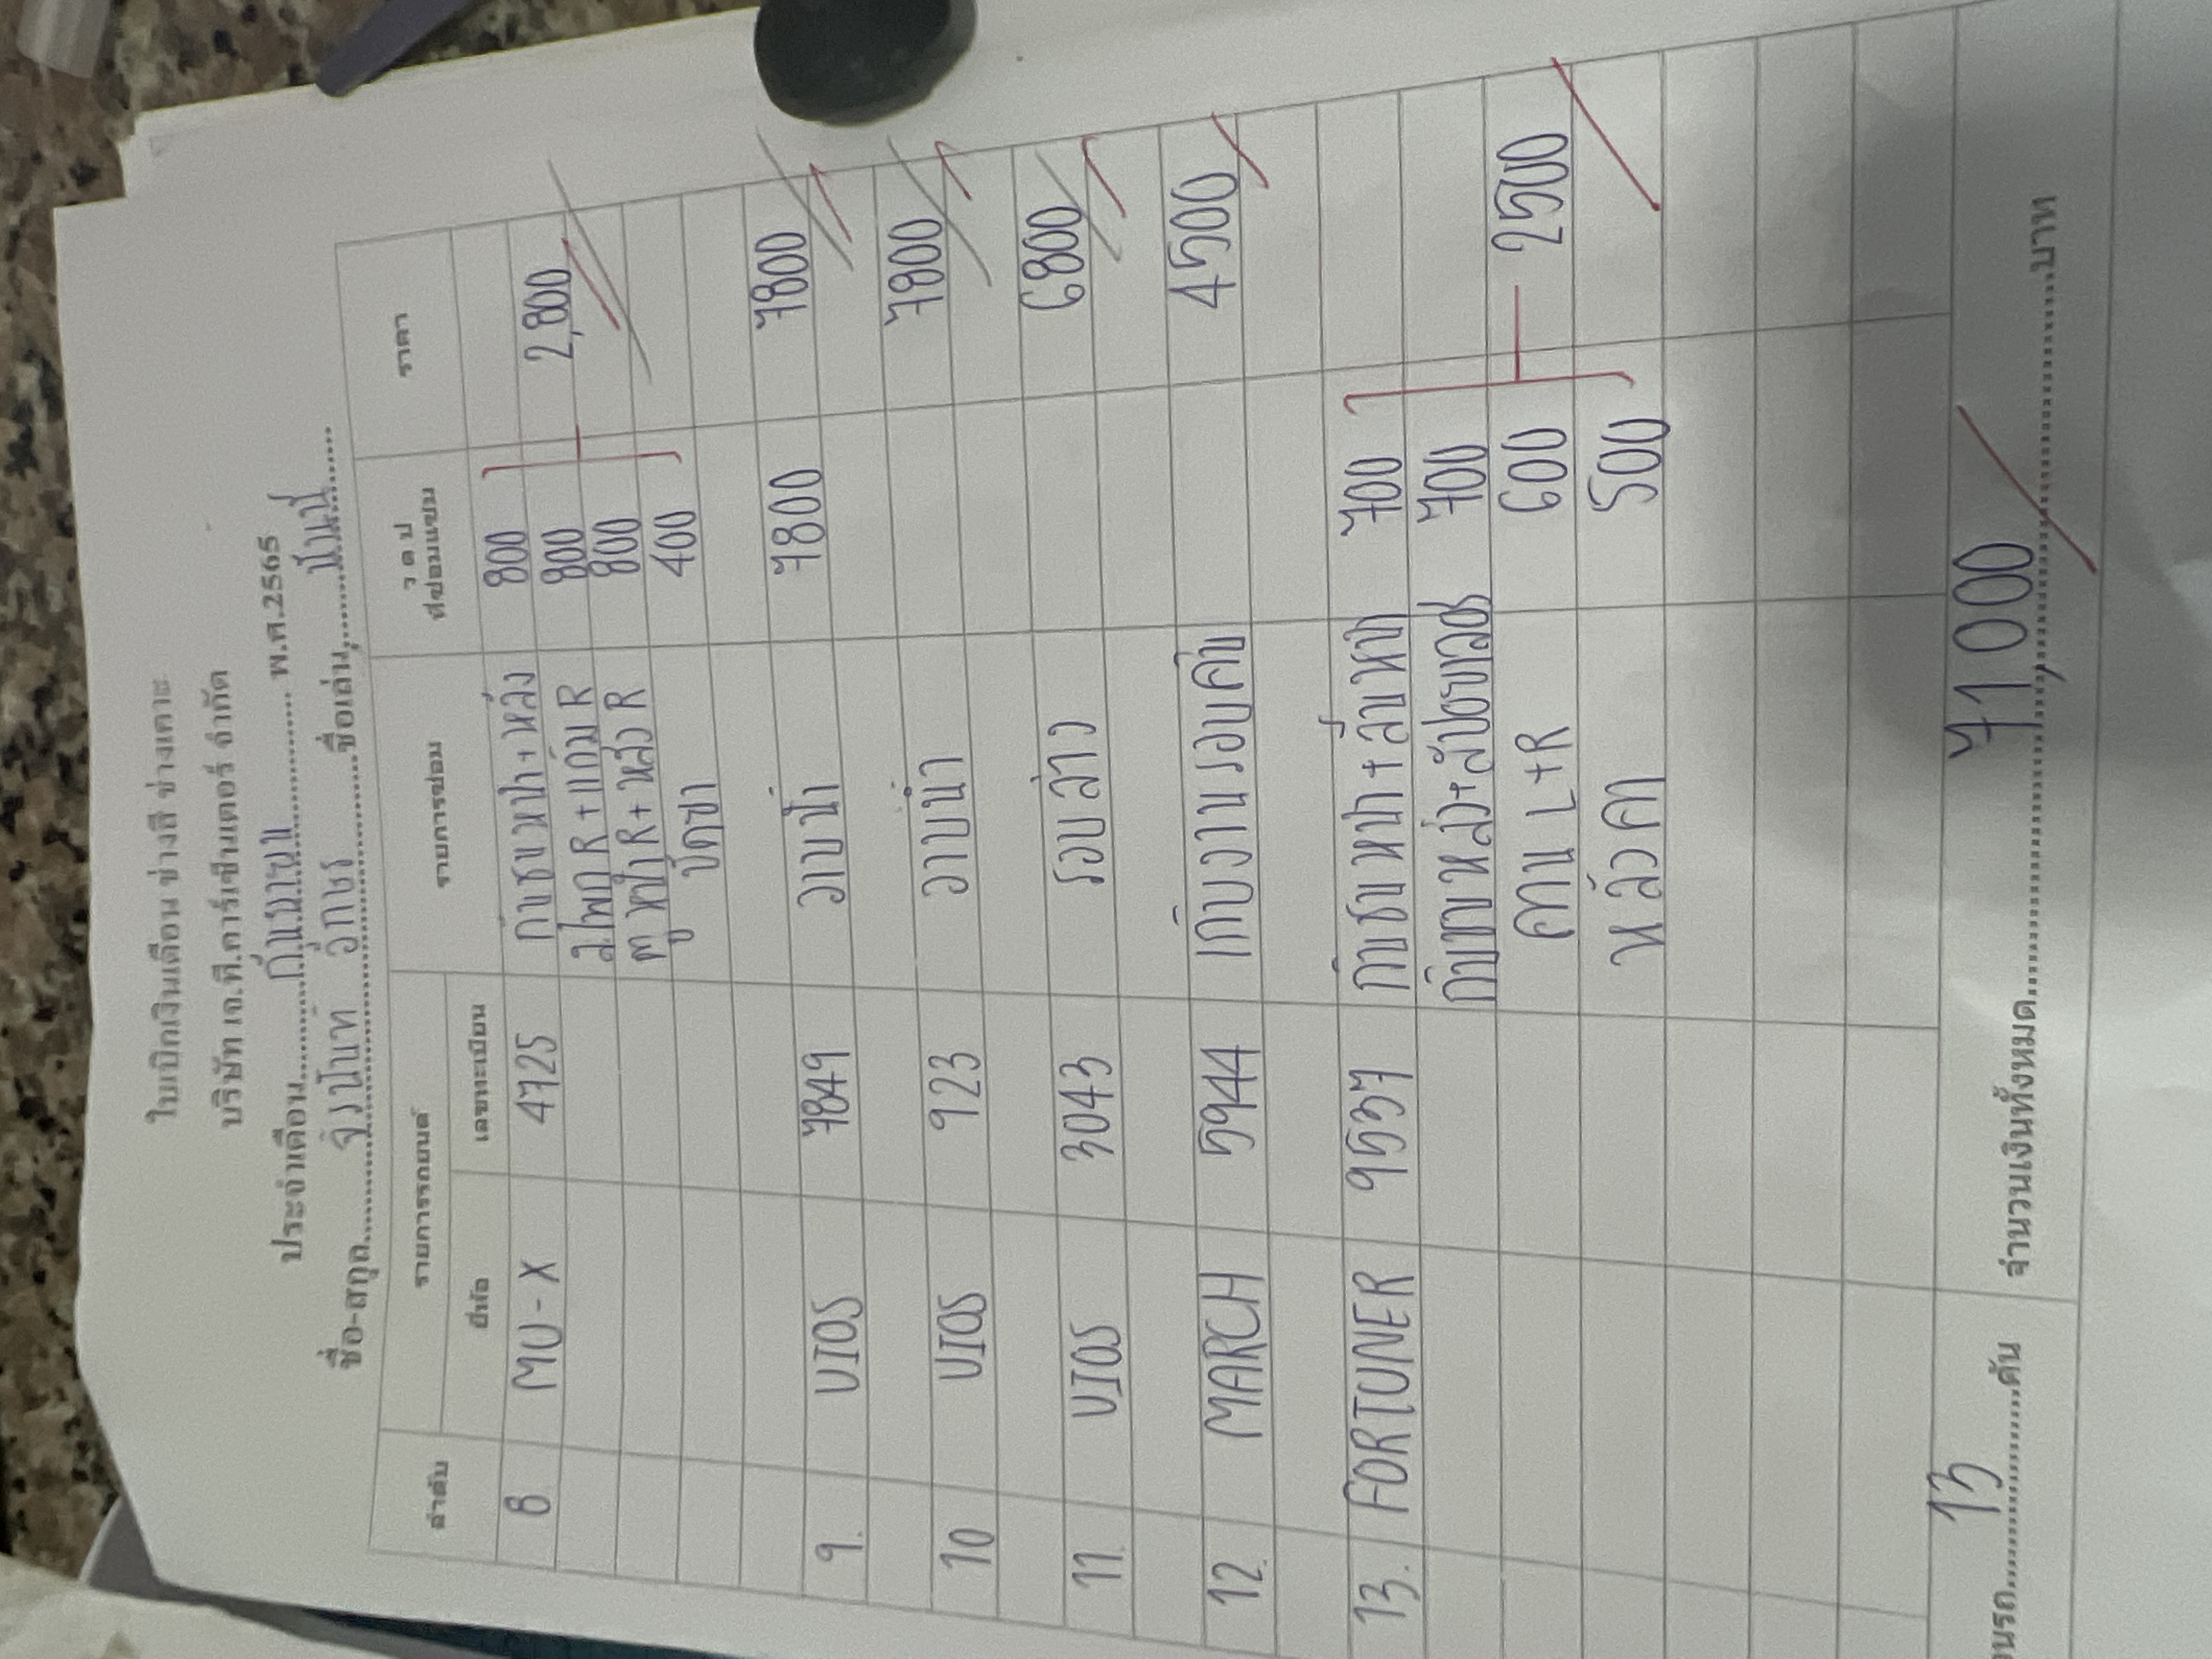 ใบเบิกเงินเดือน ช่างสี ช่างเคาะ
บริษัท เอ.ที.คาร์เซ็นเตอร์ จำกัด
ประจำเดือน.....กันยายน..... พ.ศ.2565
ชื่อ-สกุล..........ชื่อเล่น.....
ลำดับ รายการรถยนต์ รายการซ่อม ว ด ป ราคา
ยี่ห้อ เลขทะเบียน ที่ซ่อมแซม
8 MU-X 4725 กันชนหน้า+หลัง 800
R+แก้ม R 800 2,800
ตู หน้า R+หลัง R 800
400
9. VIOS 7849 7800 7800
10 VIOS 923 7800
11. VIOS 3043 รอบล่าง 6800
12. MARCH 5944 เก็บงานรอบคัน 4500
13. FORTUNER 9537 กันชนหน้า+ลิ้นหน้า 700
กันชนหลัง+ 700
คาน L+R 600 2500
หลังคา 500
นรถ.....13.....คัน จำนวนเงินทั้งหมด.....71,000.....บาท